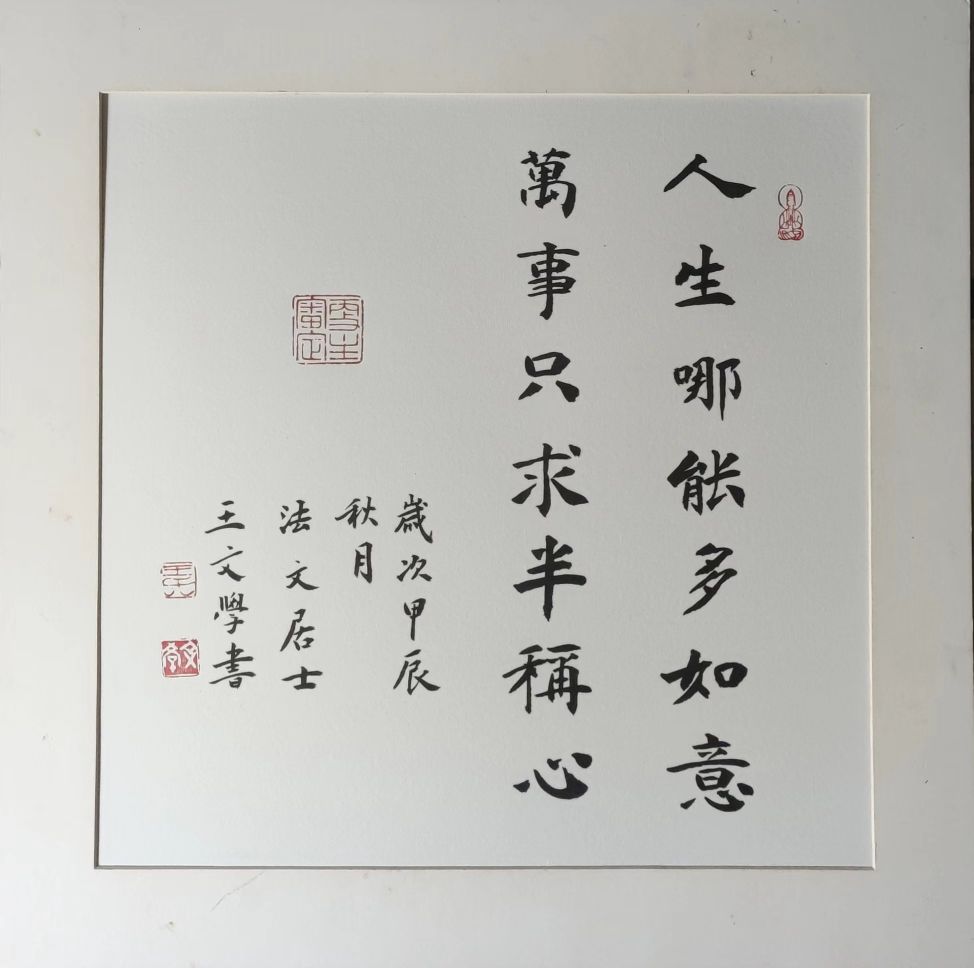 人生哪能多如意
萬事只求半稱心
歲次甲辰
秋月
法文居士
王文學書